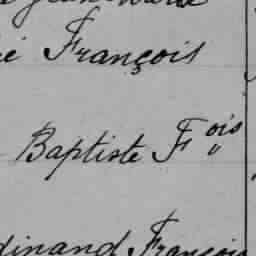 é François
Baptiste F ois „
dinand François